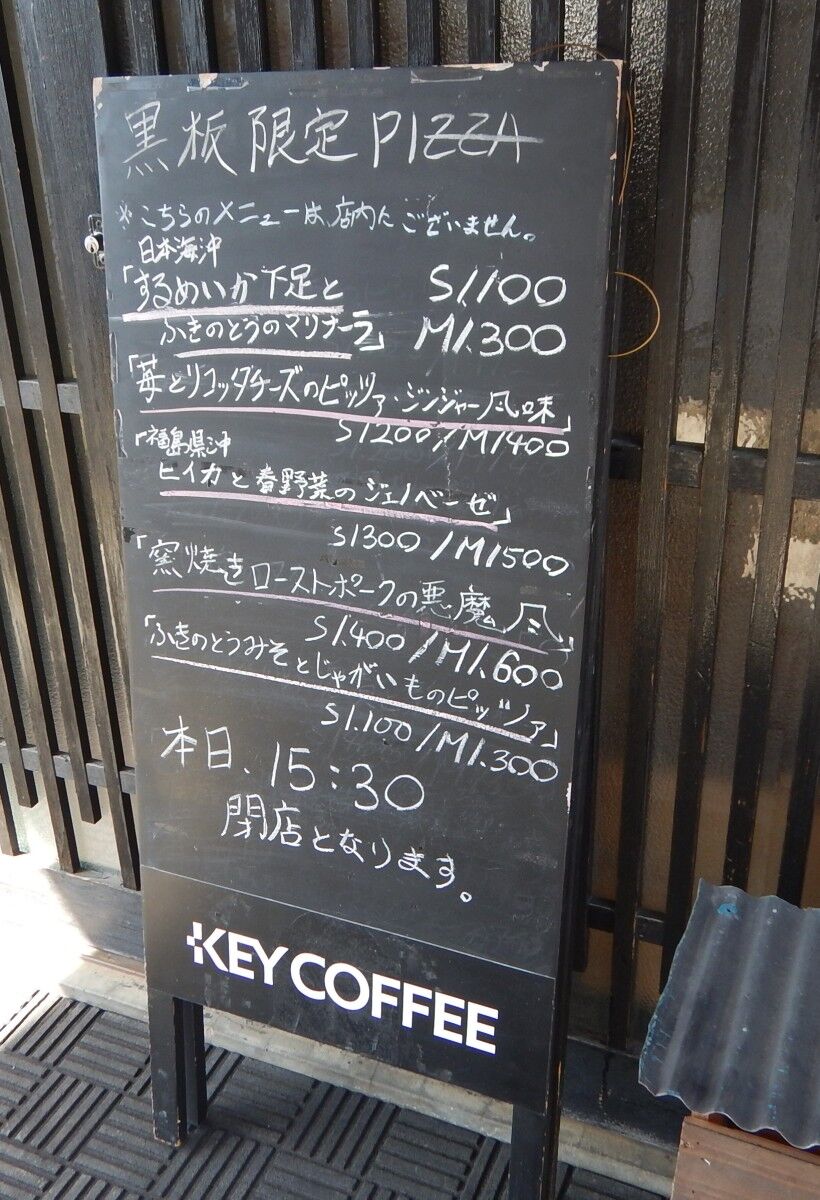 黒板限定PIZZA
※こちらのメニューは、店内にございません。
日本海沖
「するめいか下足と S1,100
ふきのとうのマリナーラ」 M1,300
「苺とリコッタチーズのピッツァ・ジンジャー風味」
S1200/M1400
「福島県沖
ヒイカと春野菜のジェノベーゼ」
S1300/M1500
「窯焼きローストポークの悪魔風」
S1,400/M1,600
「ふきのとうみそとじゃがいものピッツァ」
S1,100/M1,300
本日、15:30
閉店となります。
KEY COFFEE